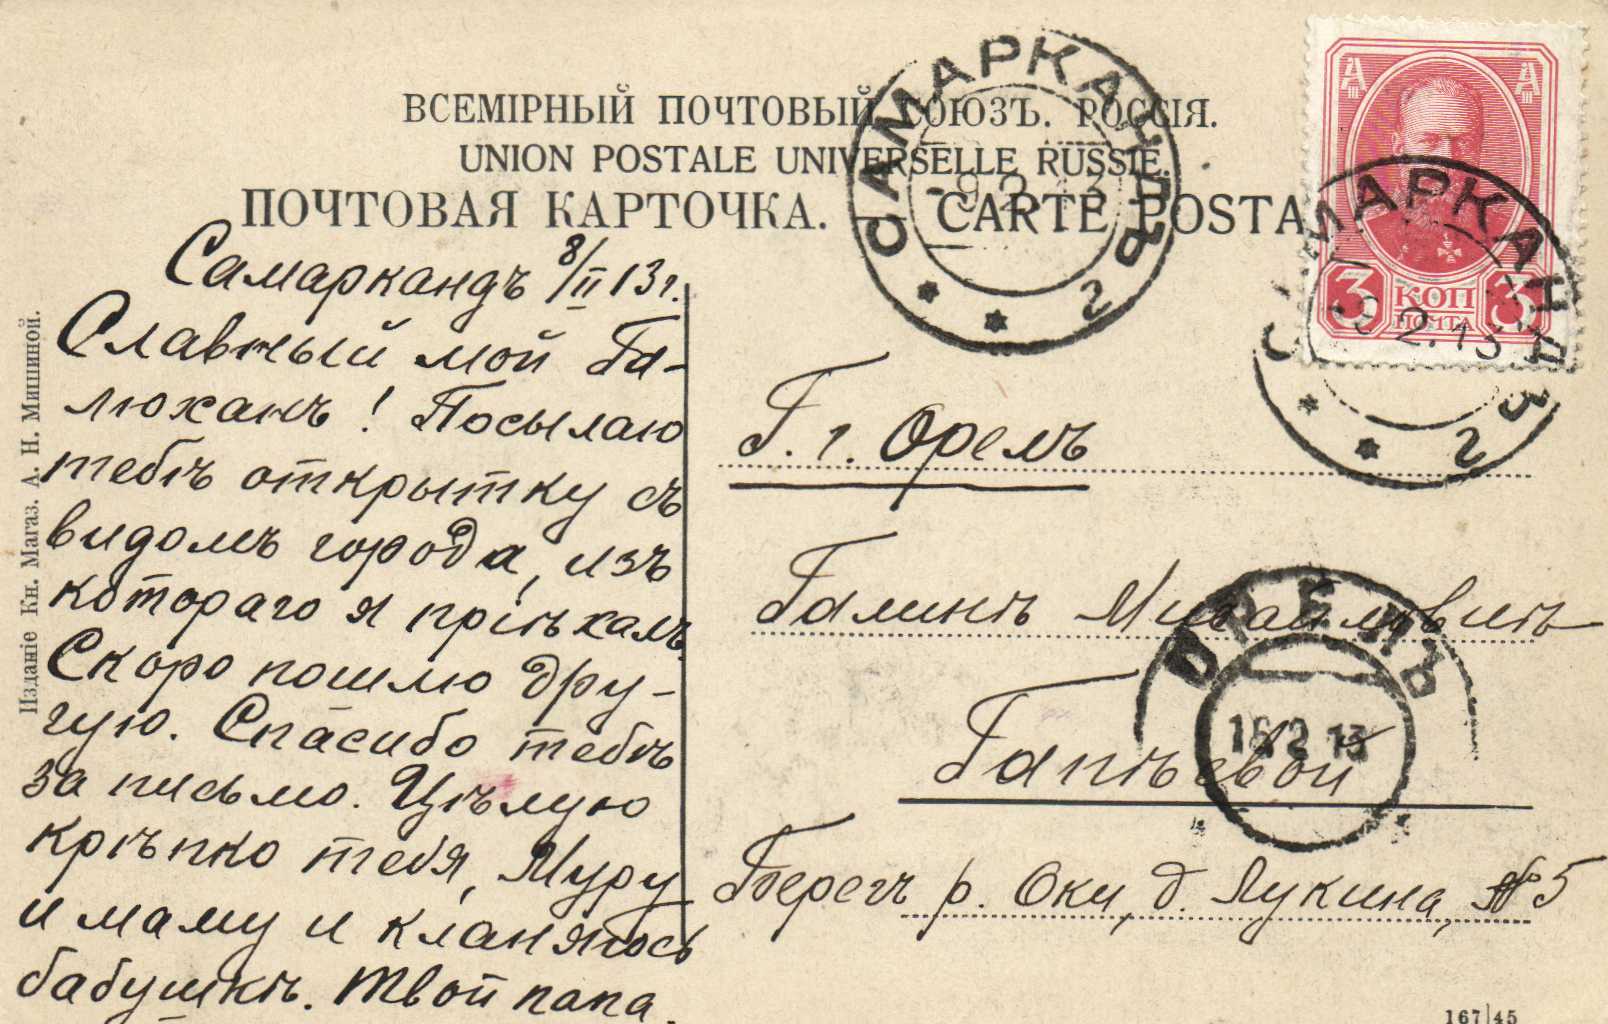 ВСЕМІРНЫЙ ПОЧТОВЫЙ СОЮЗЪ. РОССІЯ.
UNION POSTALE UNIVERSELLE RUSSIE.
ПОЧТОВАЯ КАРТОЧКА. CARTE POSTA
САМАРКАНДЪ 2
-9.2.13
3 КОП 3
ПОЧТА
САМАРКАНДЪ 2
-9.2.13
Самаркандъ 8/II 13г.
Славный мой Га-
люханъ! Посылаю
тебѣ открытку съ
видомъ города, изъ
котораго я пріѣхалъ.
Скоро пошлю дру-
гую. Спасибо тебѣ
за письмо. Цѣлую
крѣпко тебя, Муру
и маму и кланяюсь
бабушкѣ. Твой папа.
Г. г. Орелъ
Галинѣ Михайловнѣ
Гапѣевой
Берегъ р. Оки, д. Лукина, № 5
ОРЕЛЪ
16 2 13
Изданіе Кн. Магаз. А. Н. Мишиной.
167|45